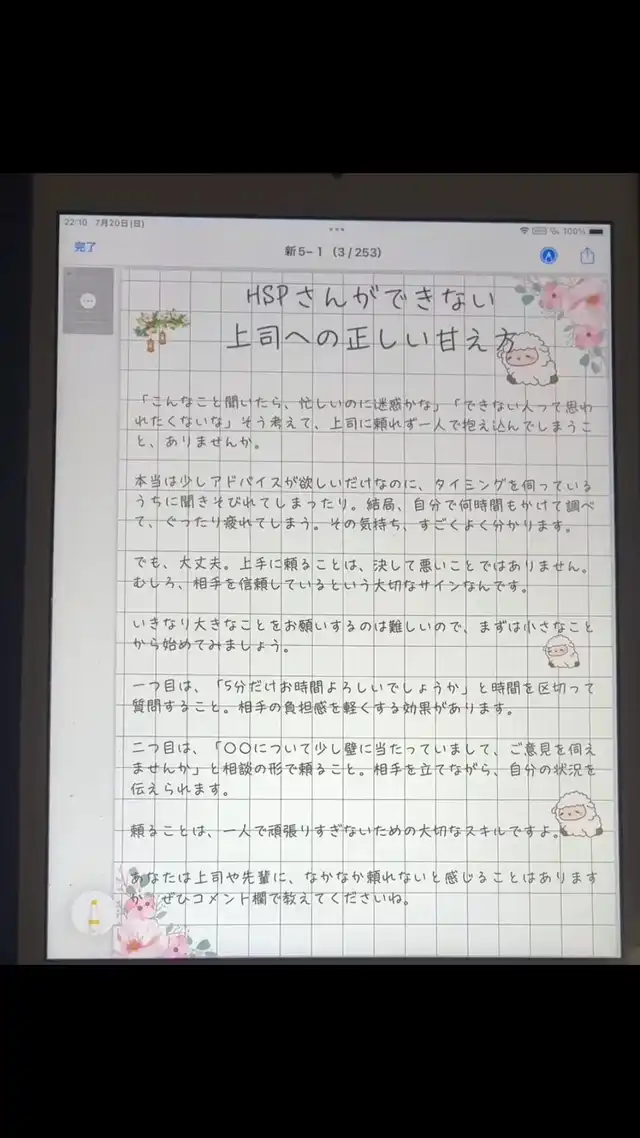 22:10 7月20日(日)
100%
完了
新5-1 (3/253)
HSPさんができない
上司への正しい甘え方
「こんなこと聞いたら、忙しいのに迷惑かな」「できない人って思わ
れたくないな」そう考えて、上司に頼れず一人で抱え込んでしまうこ
と、ありませんか。
本当は少しアドバイスが欲しいだけなのに、タイミングを伺っている
うちに聞きそびれてしまったり。結局、自分で何時間もかけて調べ
て、ぐったり疲れてしまう。その気持ち、すごくよく分かります。
でも、大丈夫。上手に頼ることは、決して悪いことではありません。
むしろ、相手を信頼しているという大切なサインなんです。
いきなり大きなことをお願いするのは難しいので、まずは小さなこと
から始めてみましょう。
一つ目は、「5分だけお時間よろしいでしょうか」と時間を区切って
質問すること。相手の負担感を軽くする効果があります。
二つ目は、「〇〇について少し壁に当たっていまして、ご意見を伺え
ませんか」と相談の形で頼ること。相手を立てながら、自分の状況を
伝えられます。
頼ることは、一人で頑張りすぎないための大切なスキルですよ。
あなたは上司や先輩に、なかなか頼れないと感じることはあります
か ぜひコメント欄で教えてくださいね。